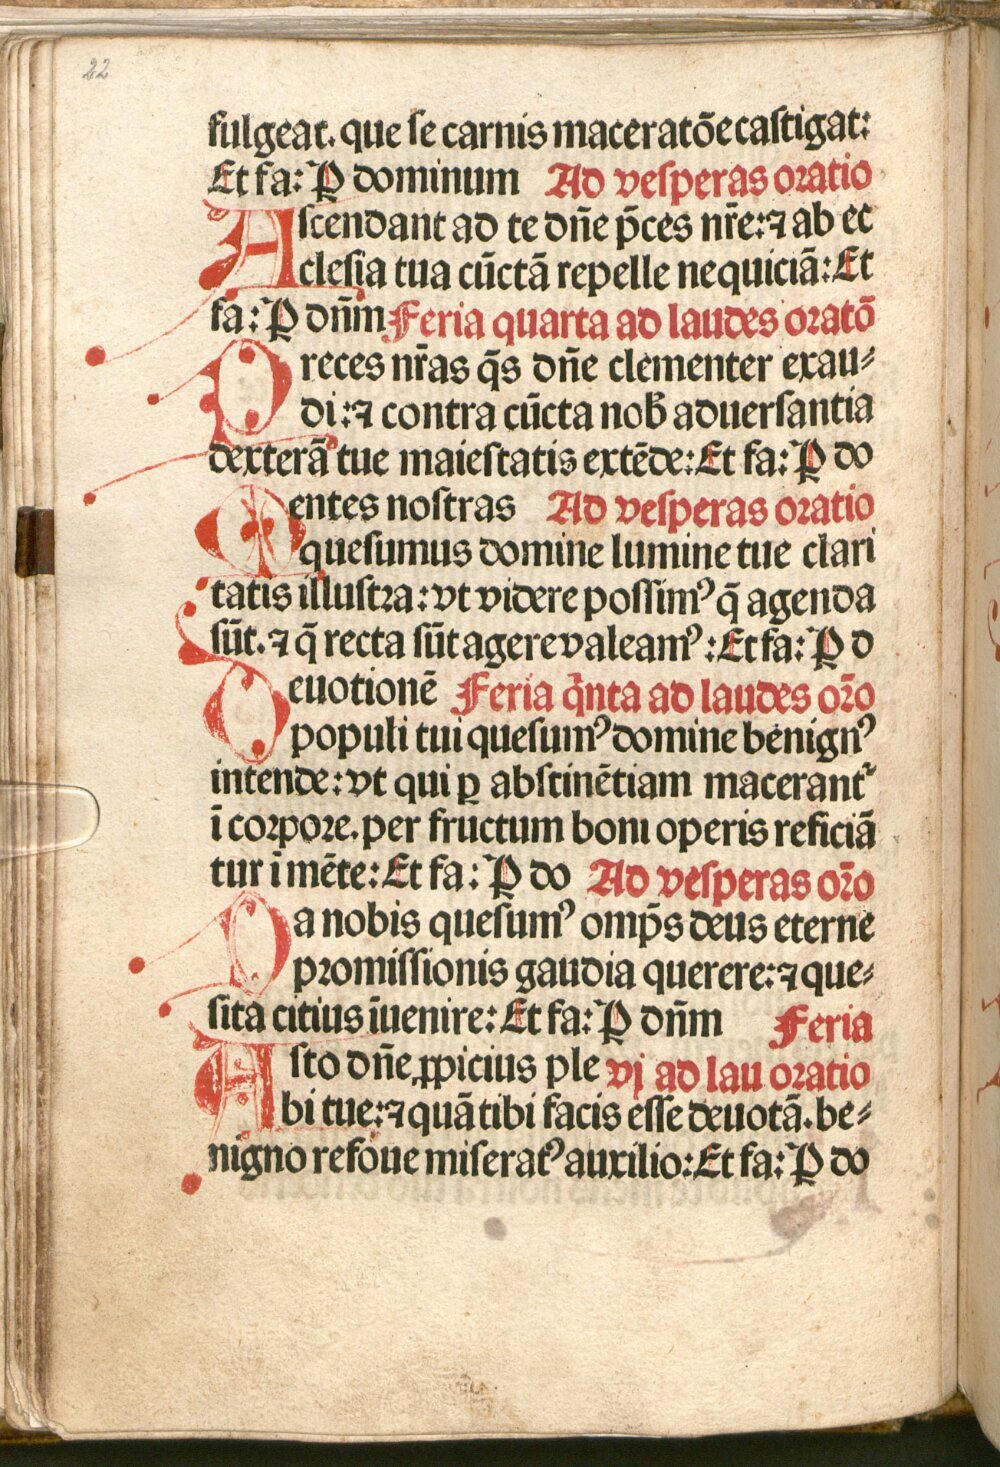 22
fulgeat. que se carnis maceratõe castigat:
Et fa: P dominum Ad vesperas oratio
Ascendant ad te dñe p̃ces nr̃e: ⁊ ab ec
clesia tua cũctã repelle nequiciã: Et
fa: P dñm Feria quarta ad laudes oratõ
Preces nr̃as q̃s dñe clementer exau⸗
di: ⁊ contra cũcta nob̃ aduersantia
dexterã tue maiestatis extẽde: Et fa: P do
Mentes nostras Ad vesperas oratio
quesumus domine lumine tue clari
tatis illustra: vt videre possimꝰ q̃ agenda
sũt. ⁊ q̃ recta sũt agere valeamꝰ: Et fa: P d
Deuotionẽ Feria q̃nta ad laudes or̃o
populi tui quesumꝰ domine benignꝰ
intende: vt qui ꝑ abstinẽtiam macerantᷣ
ĩ corpore. per fructum boni operis reficiã
tur ĩ mẽte: Et fa: P do Ad vesperas or̃o
Da nobis quesumꝰ omp̃s deus eterne
promissionis gaudia querere: ⁊ que⸗
sita citius ĩuenire: Et fa: P dñm Feria
Asto dñe ꝓpicius ple vj ad lau oratio
bi tue: ⁊ quã tibi facis esse deuotã. be⸗
nigno refoue miseratꝰ auxilio: Et fa: P do